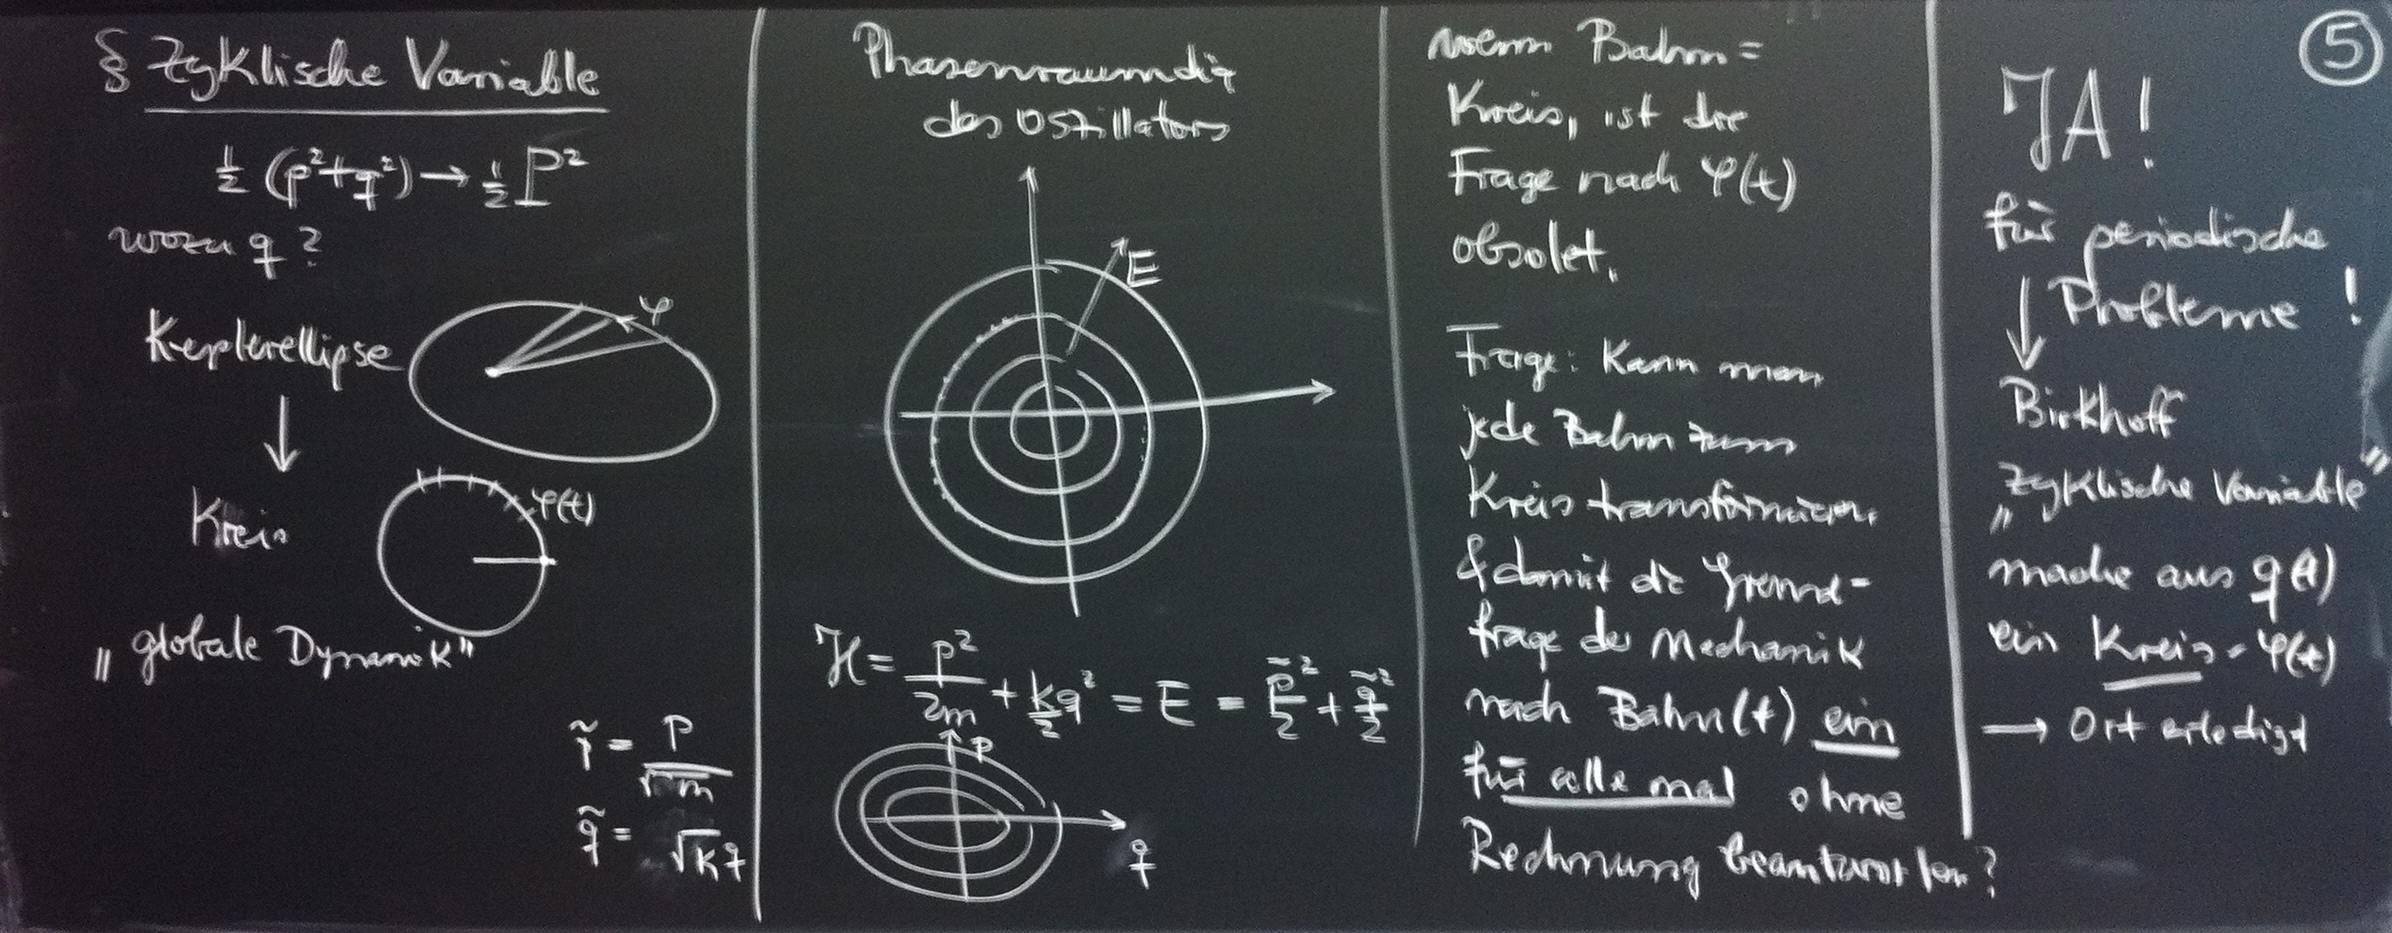 § Zyklische Variable
½ (p²+q²) → ½ P²
wozu q?
Keplerellipse
φ
↓
Kreis
φ(t)
„globale Dynamik"
p̃ = p/√m
q̃ = √k q
Phasenraumdig
des Oszillators
E
H = p²/2m + k/2 q² = E = p̃²/2 + q̃²/2
p
q
wenn Bahn =
Kreis, ist die
Frage nach φ(t)
obsolet.
Frage: Kann man
jede Bahn zum
Kreis transformieren,
& damit die Grund-
frage der Mechanik
nach Bahn(t) ein
für alle mal ohne
Rechnung beantworten?
5
JA!
für periodische
↓ Probleme!
Birkhoff
„Zyklische Variable"
mache aus q(t)
ein Kreis - φ(t)
→ Ort erledigt